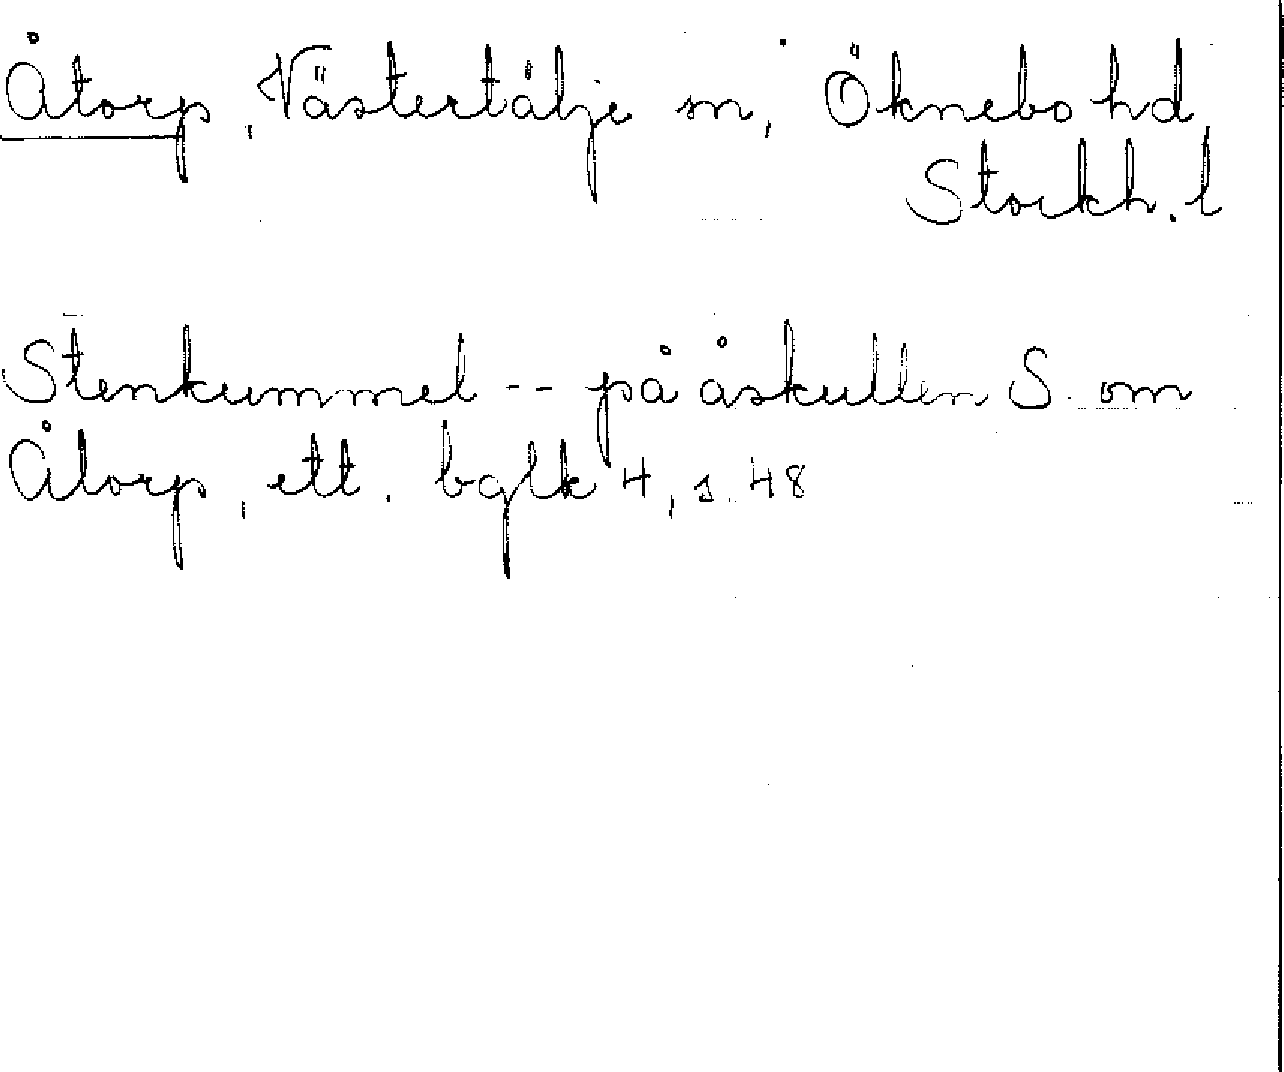 Åtorp, Västertälje sn, Öknebo hd
Stockh. l
Stenkummel -- på åskullen S. om
Åtorp, ett. bglk 4, s. 48